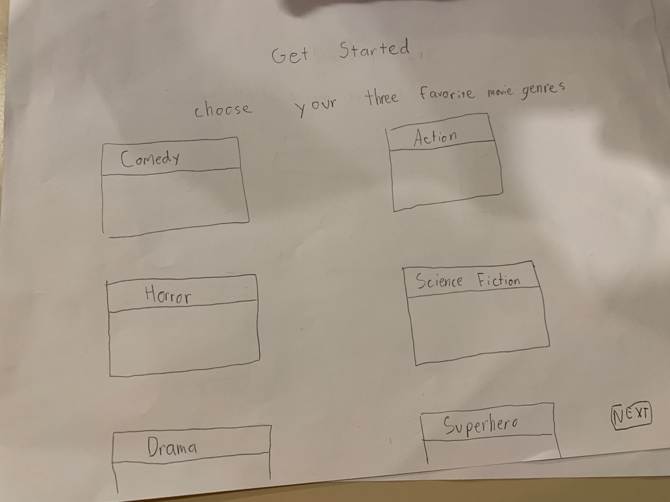 Get Started
choose your three favorite movie genres
Comedy
Action
Horror
Science Fiction
Drama
Superhero
NEXT